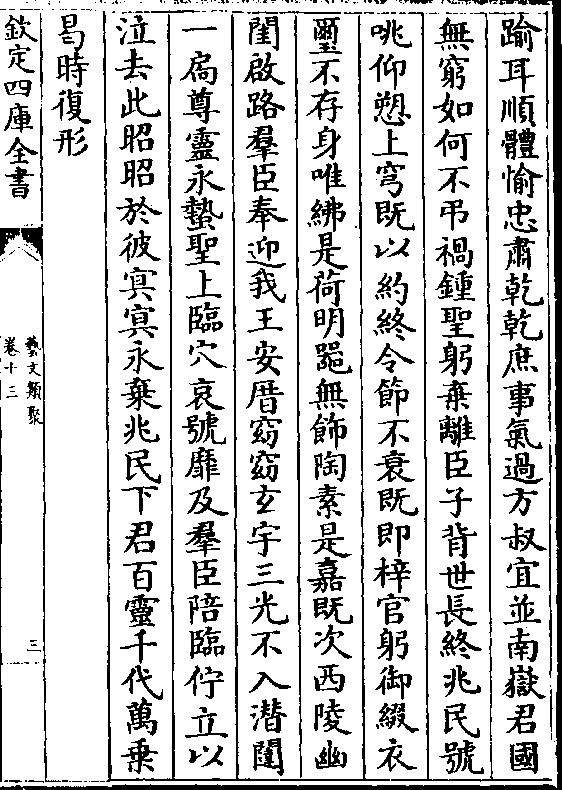 踰耳順體愉忠肅乾乾庶事氣過方叔宜並南嶽君國
無窮如何不弔禍鍾聖躬棄離臣子背世長終兆民號
咷仰愬上穹既以約終令節不衰既即梓宫躬御綴衣
璽不存身唯紼是荷明器無飾陶素是嘉既次西陵幽
閨啟路羣臣奉迎我王安厝窈窈玄宇三光不入潜闥
一扃尊靈永蟄聖上臨穴哀號靡及羣臣陪臨佇立以
泣去此昭昭於彼㝠㝠永棄兆民下君百靈千代萬乗
曷時復形
欽定四庫全書
藝文類聚
卷十三
三